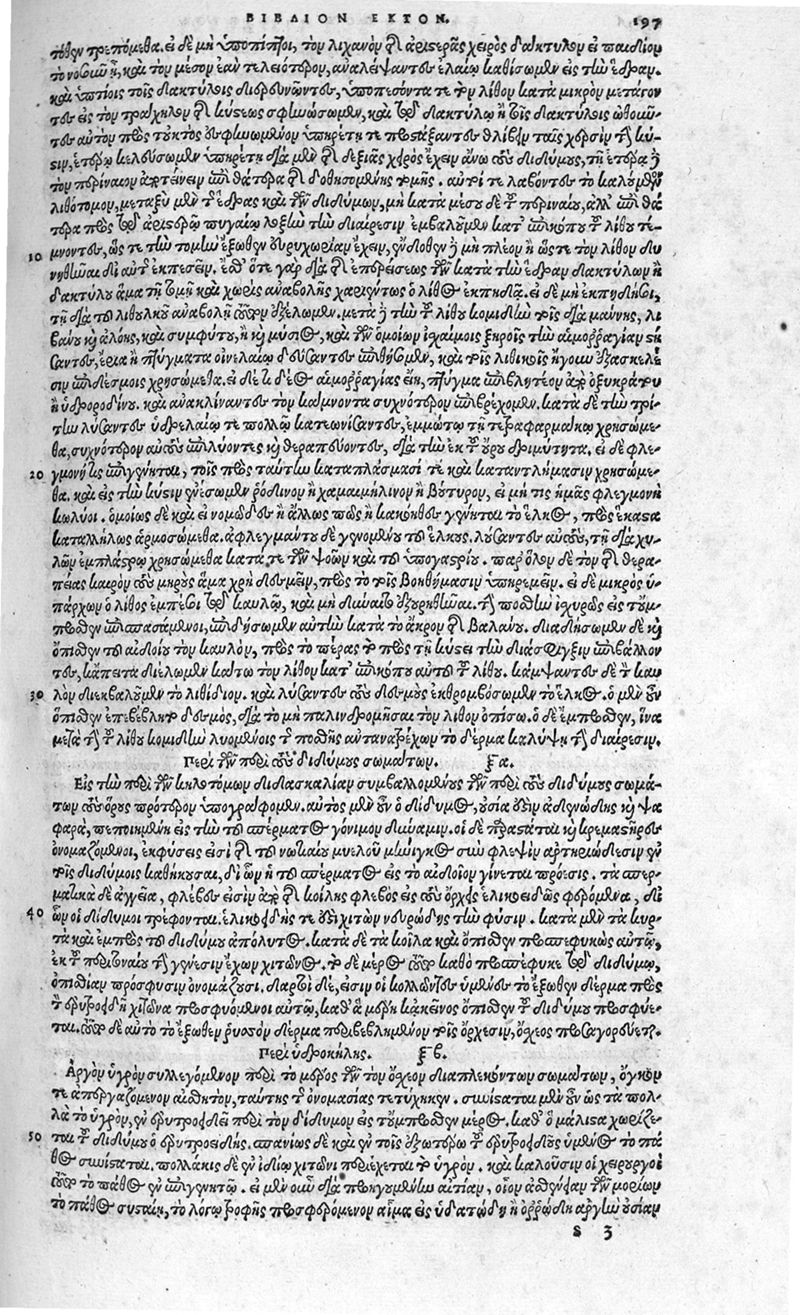 ΒΙΒΛΙΟΝ ΕΚΤΟΝ. 197
τόθεν τρεπόμεθα. εἰ δὲ μὴ ὑποπίπτοι, τὸν λιχανὸν τῆς ἀριστερᾶς χειρὸς δάκτυλον εἰ παιδίον
τὸ νοσοῦν ᾖ, καὶ τὸν μέσον ἐὰν τελειότερον, ἀναλείψαντες ἐλαίῳ καθίσωμεν εἰς τὴν ἕδραν.
καὶ ὑπτίοις τοῖς δακτύλοις διερευνῶντες, ὑποπεσόντα τε τὸν λίθον κατὰ μικρὸν μετάγον
τες εἰς τὸν τράχηλον τῆς κύστεως σφηνώσωμεν, καὶ τῷ δακτύλῳ ἢ τοῖς δακτύλοις ὠθοῦν
τες αὐτὸν πρὸς τοὐκτὸς ἐσφηνωμένον ὑπηρέτῃ τε προστάξαντες θλίβειν ταῖς χερσὶν τὴν κύ-
στιν, ἑτέρῳ κελεύσωμεν ὑπηρέτῃ διὰ μὲν τῆς δεξιᾶς χειρὸς ἔχειν ἄνω τοὺς διδύμους, τῇ ἑτέρᾳ δὲ
τὸν περίναιον ἀποτείνειν ἐπὶ θάτερα τῆς δοθησομένης τομῆς. αὐτοί τε λαβόντες τὸ καλούμενον
λιθοτόμον, μεταξὺ μὲν τῆς ἕδρας καὶ τῶν διδύμων, μὴ κατὰ μέσου δὲ τοῦ περιναίου, ἀλλ' ἐπὶ θά
τερα πρὸς τῷ ἀριστερῷ πυγαίῳ λοξὴν τὴν διαίρεσιν ἐμβαλοῦμεν κατ' ἐπικόπου τοῦ λίθου τέ-
10 μνοντες, ὥς τε τὴν τομὴν ἔξωθεν εὐρυχωρίαν ἔχειν, ἔνδοθεν δὲ μὴ πλέον ἢ ὥστε τὸν λίθον δυ
νηθῆναι δι' αὐτῆς ἐκπεσεῖν. ἔσθ' ὅτε γὰρ διὰ τῆς ἐπερείσεως τῶν κατὰ τὴν ἕδραν δακτύλων ἢ
δακτύλου ἅμα τῇ τομῇ καὶ χωρὶς ἀναβολῆς χαριέντως ὁ λίθος ἐκπηδᾷ. εἰ δὲ μὴ ἐκπηδήσει,
τῇ διὰ τοῦ λιθουλκοῦ ἀναβολῇ τοῦτον ἐξέλωμεν. μετὰ δὲ τὴν τοῦ λίθου κομιδὴν τοῖς διὰ μάννης, λι
βάνου καὶ ἀλόης, καὶ συμφύτου, ἢ καὶ μίσυος, καὶ τῶν ὁμοίων ἰσχαίμοις ξηροῖς τὴν αἱμορραγίαν στή
σαντες, ἔρια ἢ πτύγματα οἰνελαίῳ δεύσαντες ἐπιθήσωμεν, καὶ τοῖς λιθικοῖς ἤγουν ἑξασκελέ
σιν ἐπιδέσμοις χρησώμεθα. εἰ δέ τι δέος αἱμορραγίας εἴη, πτύγμα ἐπιβλητέον ἀπ' ὀξυκράτου
ἢ ὑδροροδίνου. καὶ ἀνακλίναντες τὸν κάμνοντα συχνότερον ἐπιβρέχομεν. κατὰ δὲ τὴν τρί
την λύσαντες ὑδρελαίῳ τε πολλῷ κατεωνίσαντες, ἐμμώτῳ τῇ τετραφαρμάκῳ χρησώμε
θα, συχνότερον αὐτοὺς ἐπιλύοντες καὶ θεραπεύοντες, διὰ τὴν ἐκ τοῦ οὔρου δριμύτητα. εἰ δὲ φλε
20 γμονή τις ἐπιγίνηται, τοῖς πρὸς ταύτην καταπλάσμασί τε καὶ καταντλήμασιν χρησώμε-
θα. καὶ εἰς τὴν κύστιν ἐνέσωμεν ῥόδινον ἢ χαμαιμήλινον ἢ βούτυρον, εἰ μή τις ἡμᾶς φλεγμονὴ
κωλύοι. ὁμοίως δὲ καὶ εἰ νομῶδες ἢ ἄλλως πως ἢ κακόηθες γίνηται τὸ ἕλκος, πρὸς ἕκαστα
καταλλήλως ἁρμοσώμεθα. ἀφλεγμάντου δὲ γενομένου τοῦ ἕλκους. λύσαντες αὐτοὺς, τῇ διὰ χυ-
λῶν ἐμπλάστρῳ χρησώμεθα κατά τε τῶν ψοῶν καὶ τοῦ ὑπογαστρίου. παρ' ὅλον δὲ τὸν τῆς θερα-
πείας καιρὸν τοὺς μηροὺς ἅμα χρὴ δεσμεῖν, πρὸς τὸ τοῖς βοηθήμασιν ὑπηρεμεῖν. εἰ δὲ μικρὸς ὑ-
πάρχων ὁ λίθος ἐμπέσοι τῷ καυλῷ, καὶ μὴ δύναιτο ἐξουρηθῆναι. τὴν πόσθην ἰσχυρῶς εἰς τοὔμ-
προσθεν ἐπισπασάμενοι, ἐπιδήσωμεν αὐτὴν κατὰ τὸ ἄκρον τῆς βαλάνου. διαδήσωμεν δὲ καὶ
ὄπισθεν τοῦ αἰδοίου τὸν καυλὸν, πρὸς τὸ πέρας τὸ πρὸς τῇ κύστει τὴν διάσφιγξιν ἐπιβάλλον
τες, κἄπειτα διέλωμεν κάτω τὸν λίθον κατ' ἐπικόπου αὐτοῦ τοῦ λίθου. κάμψαντες δὲ τὸν καυ
30 λὸν διεκβαλοῦμεν τὸ λιθίδιον. καὶ λύσαντες τοὺς δεσμοὺς ἐκθρομβόσωμεν τὸ ἕλκος. ὁ μὲν οὖν
ὄπισθεν ἐπεβέβλητο δεσμὸς, διὰ τὸ μὴ παλινδρομῆσαι τὸν λίθον ὀπίσω. ὁ δὲ ἔμπροσθεν, ἵνα
μετὰ τὴν τοῦ λίθου κομιδὴν λυομένοις τῆς πόσθης αὐτανατρέχων τὸ δέρμα καλύψῃ τὴν διαίρεσιν.
Περὶ τῶν περὶ τοὺς διδύμους σωμάτων. ξα.
Εἰς τὴν περὶ τῶν κηλοτόμων διδασκαλίαν συμβαλλομένους τῶν περὶ τοὺς διδύμους σωμά-
των τοὺς ὅρους πρότερον ὑπογράφομεν. αὐτὸς μὲν οὖν ὁ δίδυμος, οὐσία ἐστὶν ἀδενώδης καὶ ψα
φαρὰ, πεποιημένη εἰς τὴν τοῦ σπέρματος γόνιμον δύναμιν. οἱ δὲ παραστάται καὶ κρεμαστῆρες
ὀνομαζόμενοι, ἐκφύσεις εἰσὶ τῆς τοῦ νωτιαίου μυελοῦ μήνιγγος σὺν φλεψὶν ἀρτηριώδεσιν ἐν
τοῖς διδύμοις καθήκουσαι, δι' ὧν ἡ τοῦ σπέρματος εἰς τὸ αἰδοῖον γίνεται πρόεσις. τὰ σπερ-
ματικὰ δὲ ἀγγεῖα, φλέβες εἰσὶν ἀπὸ τῆς κοίλης φλεβὸς εἰς τοὺς ὄρχεις ἑλικοειδῶς φερόμεναι, δι'
40 ὧν οἱ δίδυμοι τρέφονται. ἑλικοειδής τε ἐστὶ χιτὼν νευρώδης τὴν φύσιν. κατὰ μὲν τὰ κυρ-
τὰ καὶ ἔμπροσθεν τοῦ διδύμου ἀπόλυτος. κατὰ δὲ τὰ κοῖλα καὶ ὄπισθεν προσπεφυκὼς αὐτῷ,
ἐκ τοῦ περιτοναίου τὴν γένεσιν ἔχων χιτῶνος. τὸ δὲ μέρος τοῦτο καθὸ προσπέφυκε τῷ διδύμῳ,
ὀπισθίαν πρόσφυσιν ὀνομάζουσι. δαρτοὶ δὲ, εἰσὶν οἱ κολλῶντες ὑμένες τὸ ἔξωθεν δέρμα πρὸς
τὸν ἐρυτροειδῆ χιτῶνα προσφυόμενοι αὐτῷ, καθ' ἃ μέρη κἀκεῖνος ὄπισθεν τῷ διδύμου προσφύε-
ται. τοῦτο δὲ αὐτὸ τὸ ἔξωθεν ῥυσσὸν δέρμα περιβεβλημένον τοῖς ὄρχεσιν, ὄσχεος προσαγορεύεται.
Περὶ ὑδροκήλης. ξβ.
Ἀργὸν ὑγρὸν συλλεγόμενον περὶ τὸ μέρος τῶν τὸν ὄσχεον διαπλεκόντων σωμάτων, ὄγκον
τε ἀπεργαζόμενον αἰσθητὸν, ταύτης τῆς ὀνομασίας τετύχηκεν. συνίσταται μὲν οὖν ὡς τὰ πολ-
λὰ τὸ ὑγρὸν, ἐν ἐρυτροειδεῖ περὶ τὸν δίδυμον εἰς τοὔμπροσθεν μέρος. καθ' ὃ μάλιστα χωρίζε-
50 ται τοῦ διδύμου ὁ ἐρυτροειδής. σπανίως δὲ καὶ ἐν τοῖς ἐξωτέρω τοῦ ἐρυτροειδοῦς ὑμένος τὸ πά
θος συνίσταται. πολλάκις δὲ ἐν ἰδίῳ χιτῶνι περιέχεται τὸ ὑγρόν. καὶ καλοῦσιν οἱ χειρουργοὶ
τοῦτο τὸ πάθος ἐν ἐπιγενητῷ. εἰ μὲν οὖν διὰ προηγουμένην αἰτίαν, οἷον ἀσθένειαν τῶν μορίων
τὸ πάθος συσταίη, τὸ λόγῳ τροφῆς προσφερόμενον αἷμα εἰς ὑδατώδη ἢ ὀρρώδη ἀργὴν οὐσίαν
s 3